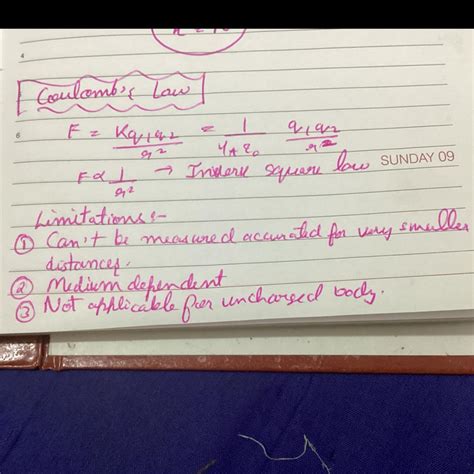 Coulomb's Law
6
F = Kq1q2/r² = 1/4πε0 q1q2/r²
F ∝ 1/r² → Inverse square law SUNDAY 09
Limitations :-
① Can't be measured accurated for very smaller
distances.
② Medium dependent
③ Not applicable for uncharged body.